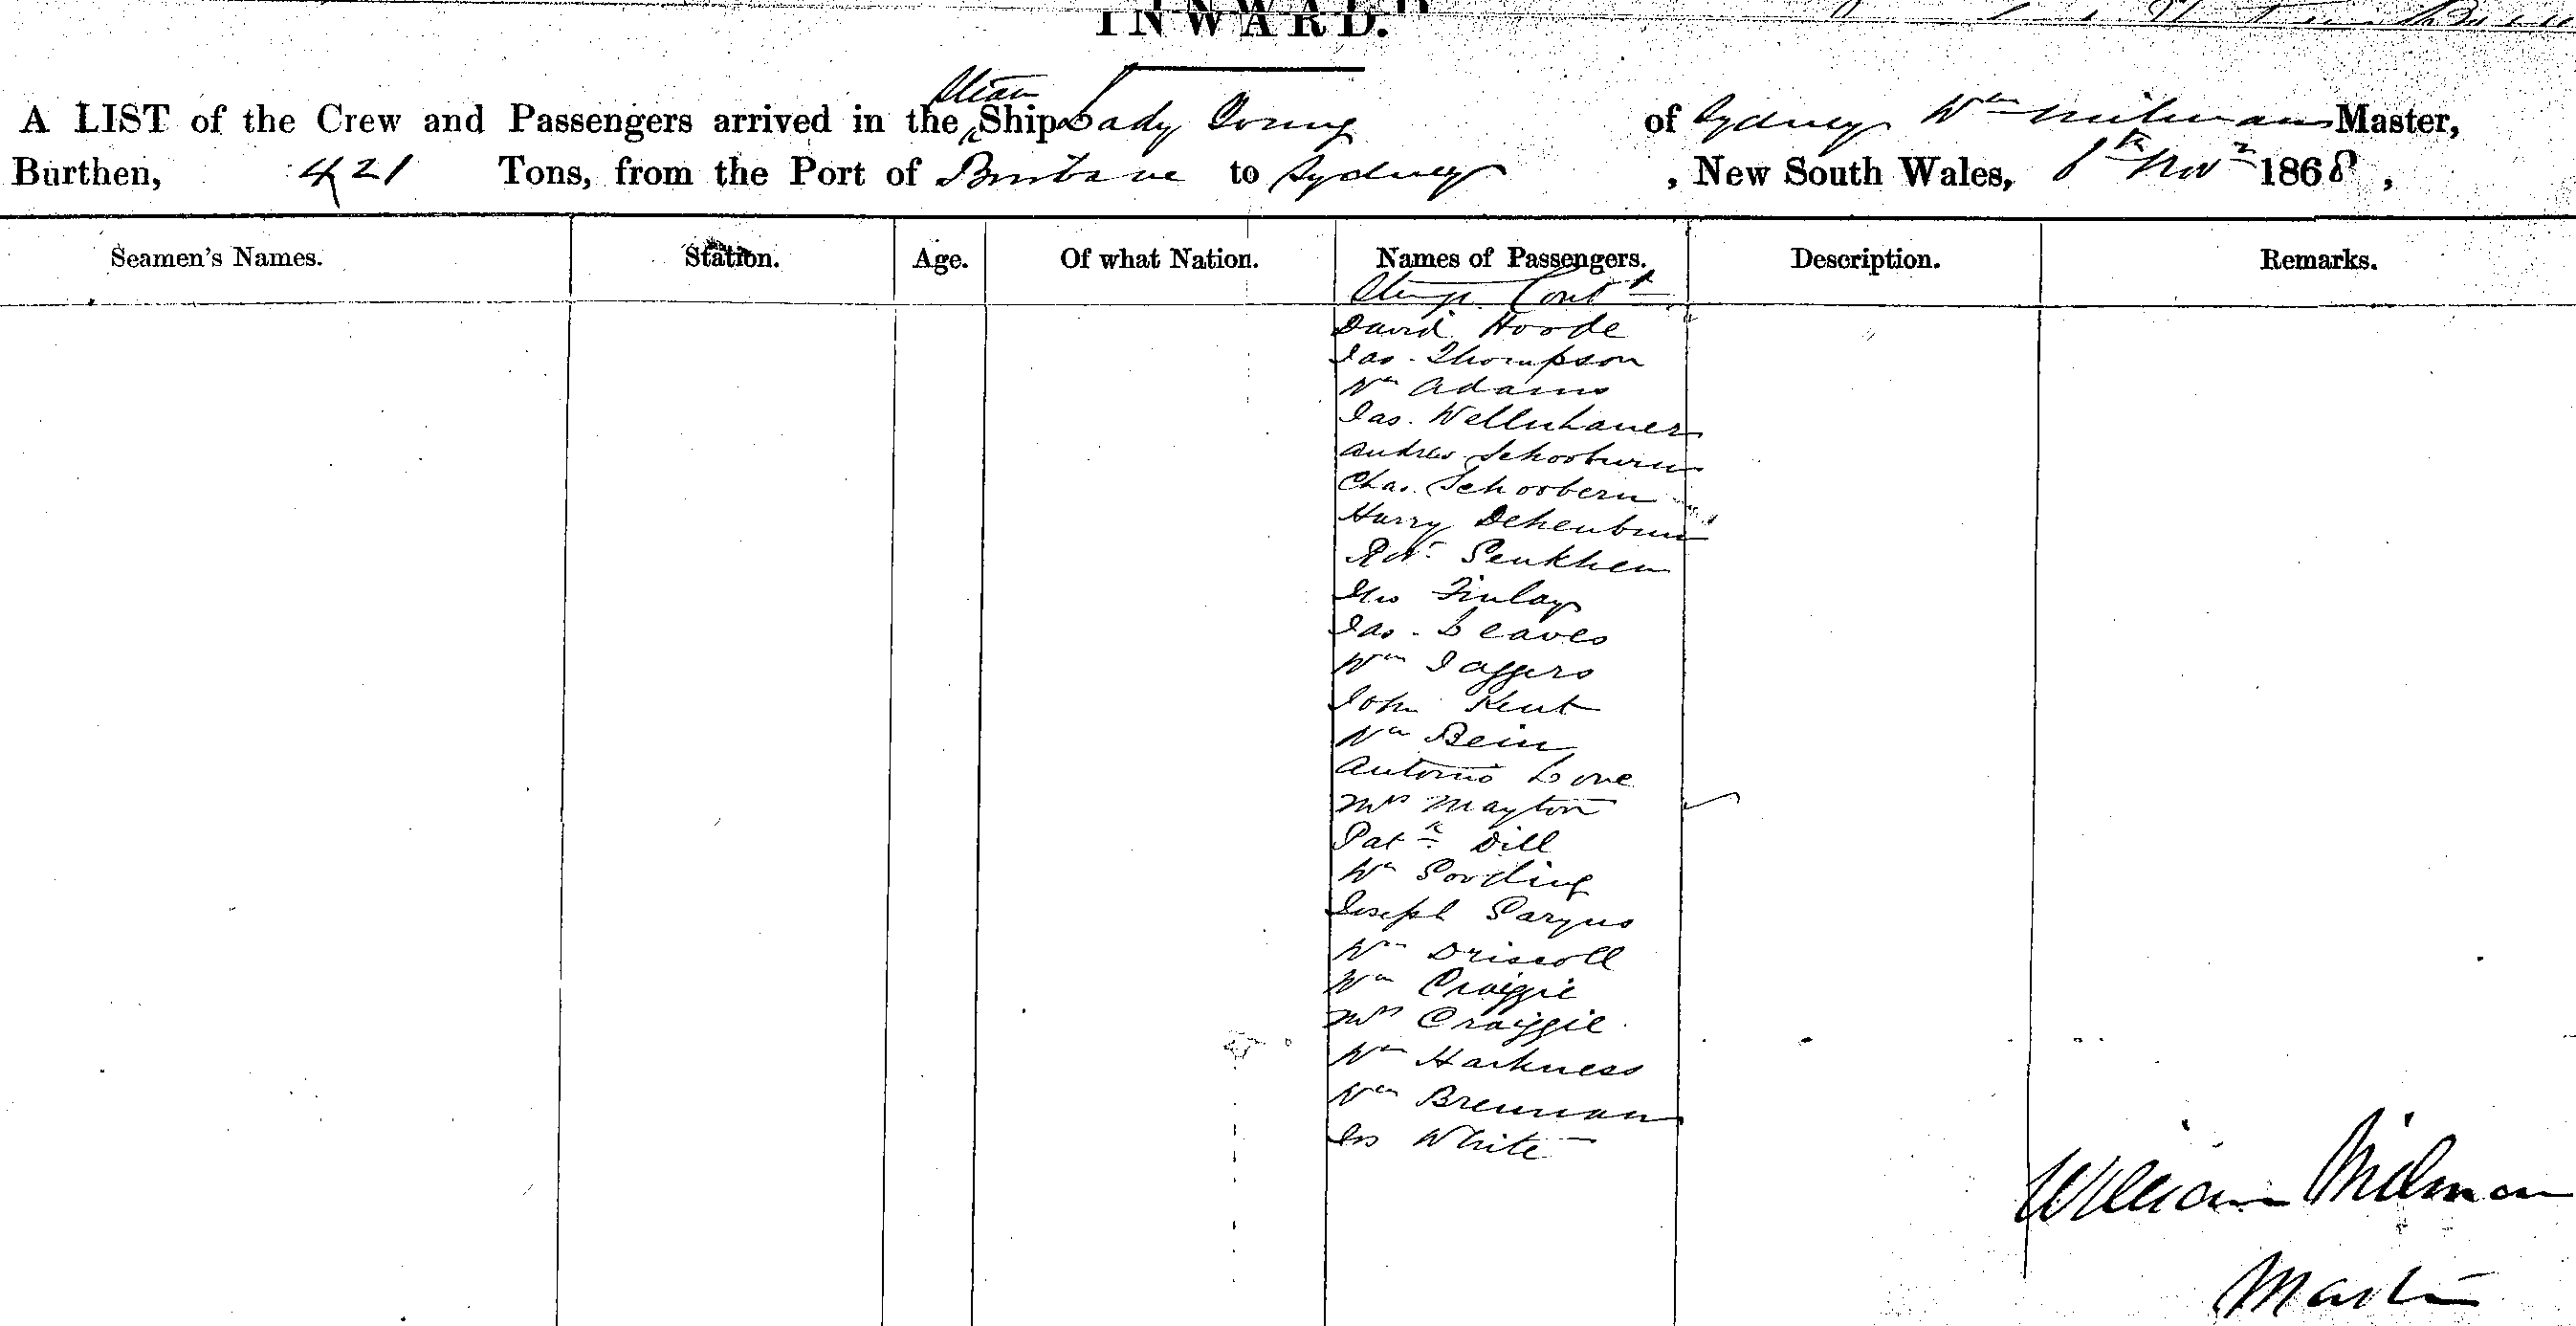 INWARD.
A LIST of the Crew and Passengers arrived in the Steam Ship Lady Young of Sydney Wm Milman Master,
Burthen, 421 Tons, from the Port of Brisbane to Sydney, New South Wales, 8th Novr 1868,
Seamen's Names. Station. Age. Of what Nation. Names of Passengers. Description. Remarks.
Contd
David Hoode
Jas. Thompson
Wm Adams
Jas.
Andrew
Chas. Schoobern
Harry
Robt
Finlay
Jas. Leaves
Wm Jaggers
John Kent
Wm Bein
Antonio Love
Mrs Mayton
Patk Dill
Wm
Joseph
Wm Driscoll
Wm Craiggie
Mrs Craiggie
Wm Harkness
Wm Brennan
Jos White
William Milman
Master